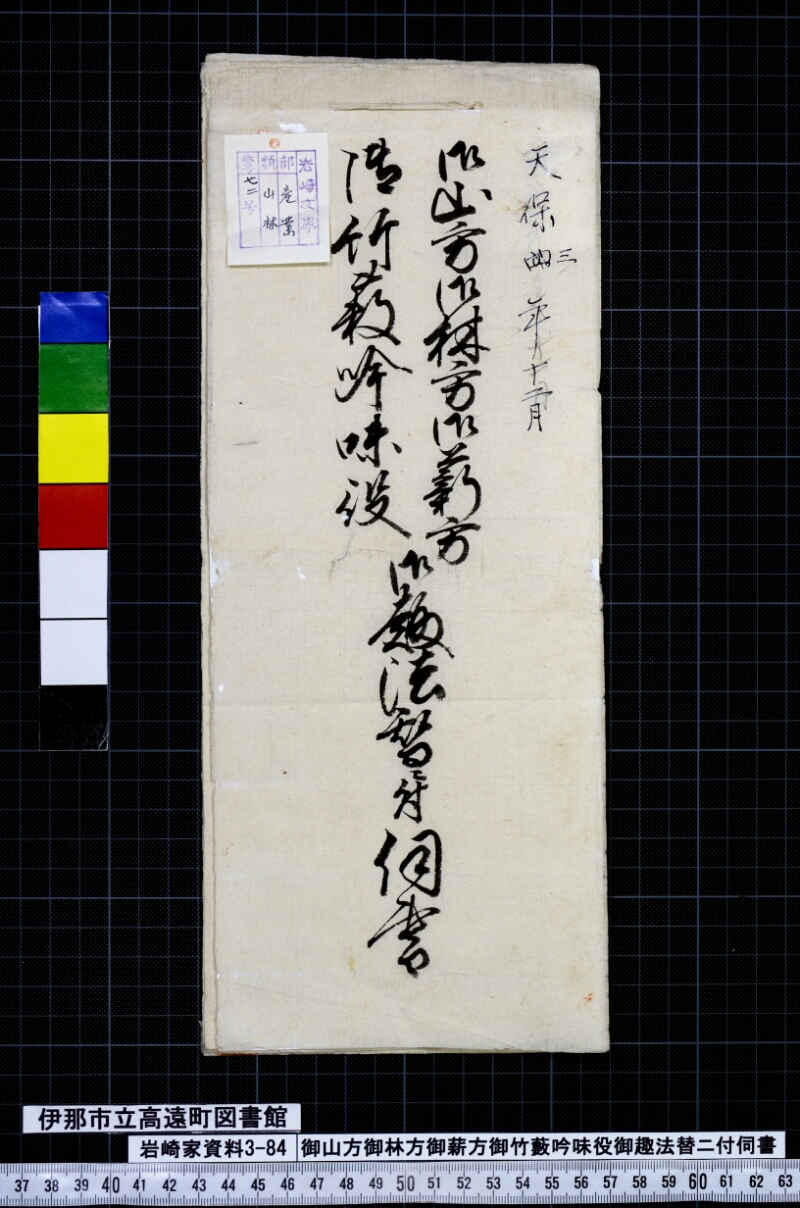 天保四三年十二月
御山方御林方御薪方
御竹藪吟味役
御趣法替ニ付伺書
岩崎文庫
部 産業
類 山林
番 七二号
伊那市立高遠町図書館
岩崎家資料3-84 御山方御林方御薪方御竹藪吟味役御趣法替ニ付伺書
37 38 39 40 41 42 43 44 45 46 47 48 49 50 51 52 53 54 55 56 57 58 59 60 61 62 63